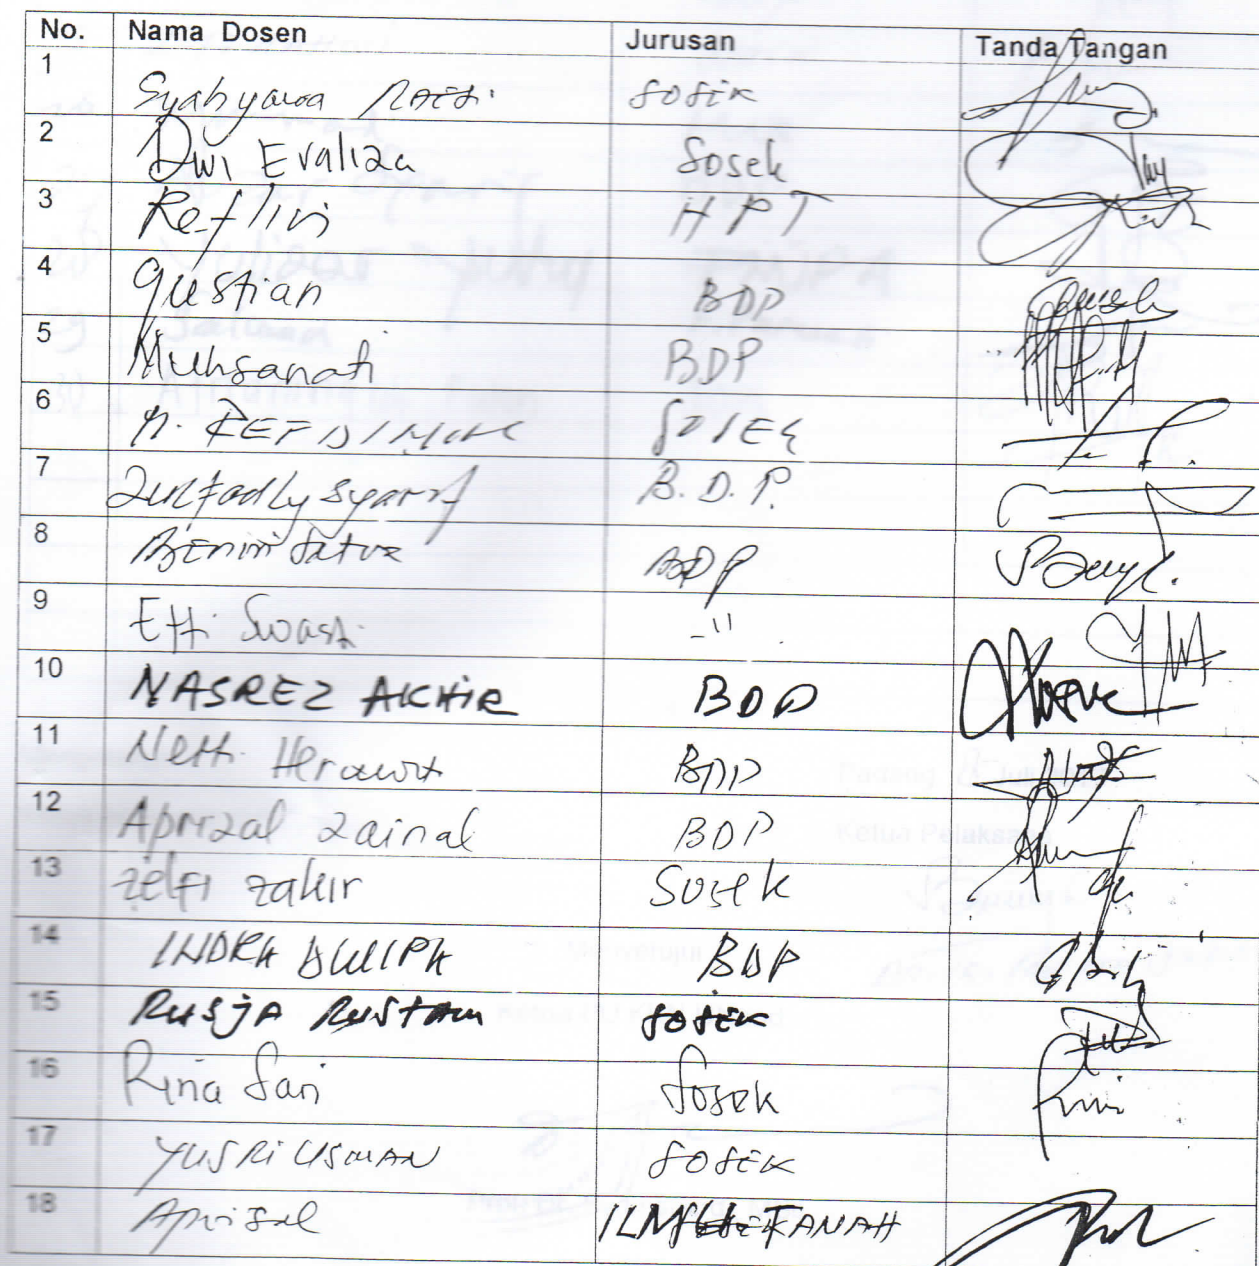 No. Nama Dosen Jurusan Tanda Tangan
1 Syahyana Raesi sosek
2 Dwi Evaliza Sosek
3 Reflin HPT
4 Gustian BDP
5 Muhsanati BDP
6 SOSEK
7 Zulfadly Syarif B.D.P.
8 Benni Satria BDP
9 Etti Swasti -"-
10 NASREZ AKHIR BDP
11 Netti Herawati BDP
12 Aprizal Zainal BDP
13 Zelfi Zakir Sosek
14 INDRA DWIPA BDP
15 RUSJA RUSTAM SOSEK
16 Rina Sari Sosek
17 YUSRI USMAN SOSEK
18 Aprisal ILMU TANAH